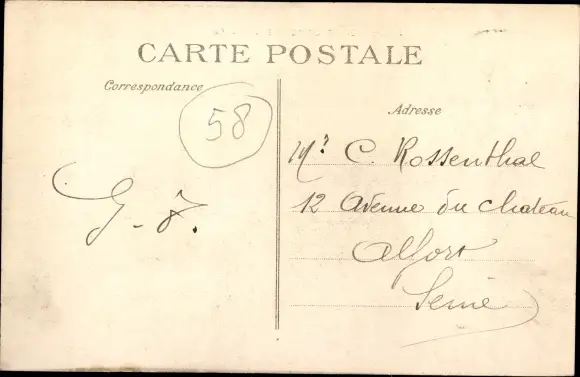 CARTE POSTALE
Correspondance
58
G-J.
Adresse
Mr. C. Rossenthal
12 Avenue du Chateau
Alfort
Seine